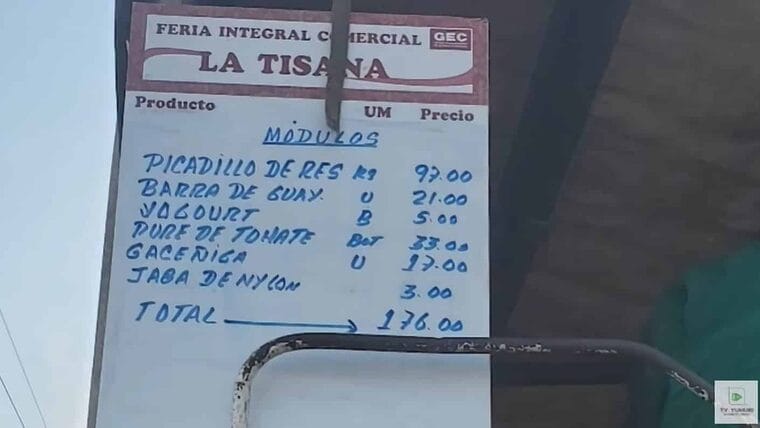 FERIA INTEGRAL COMERCIAL GEC
LA TISANA
Producto UM Precio
MÓDULOS
PICADILLO DE RES KG 97.00
BARRA DE GUAY. U 21.00
YOGOURT B 5.00
PURE DE TOMATE BOT 33.00
GACEÑIGA U 17.00
JABA DE NYLON 3.00
TOTAL 176.00
TV YUMURI